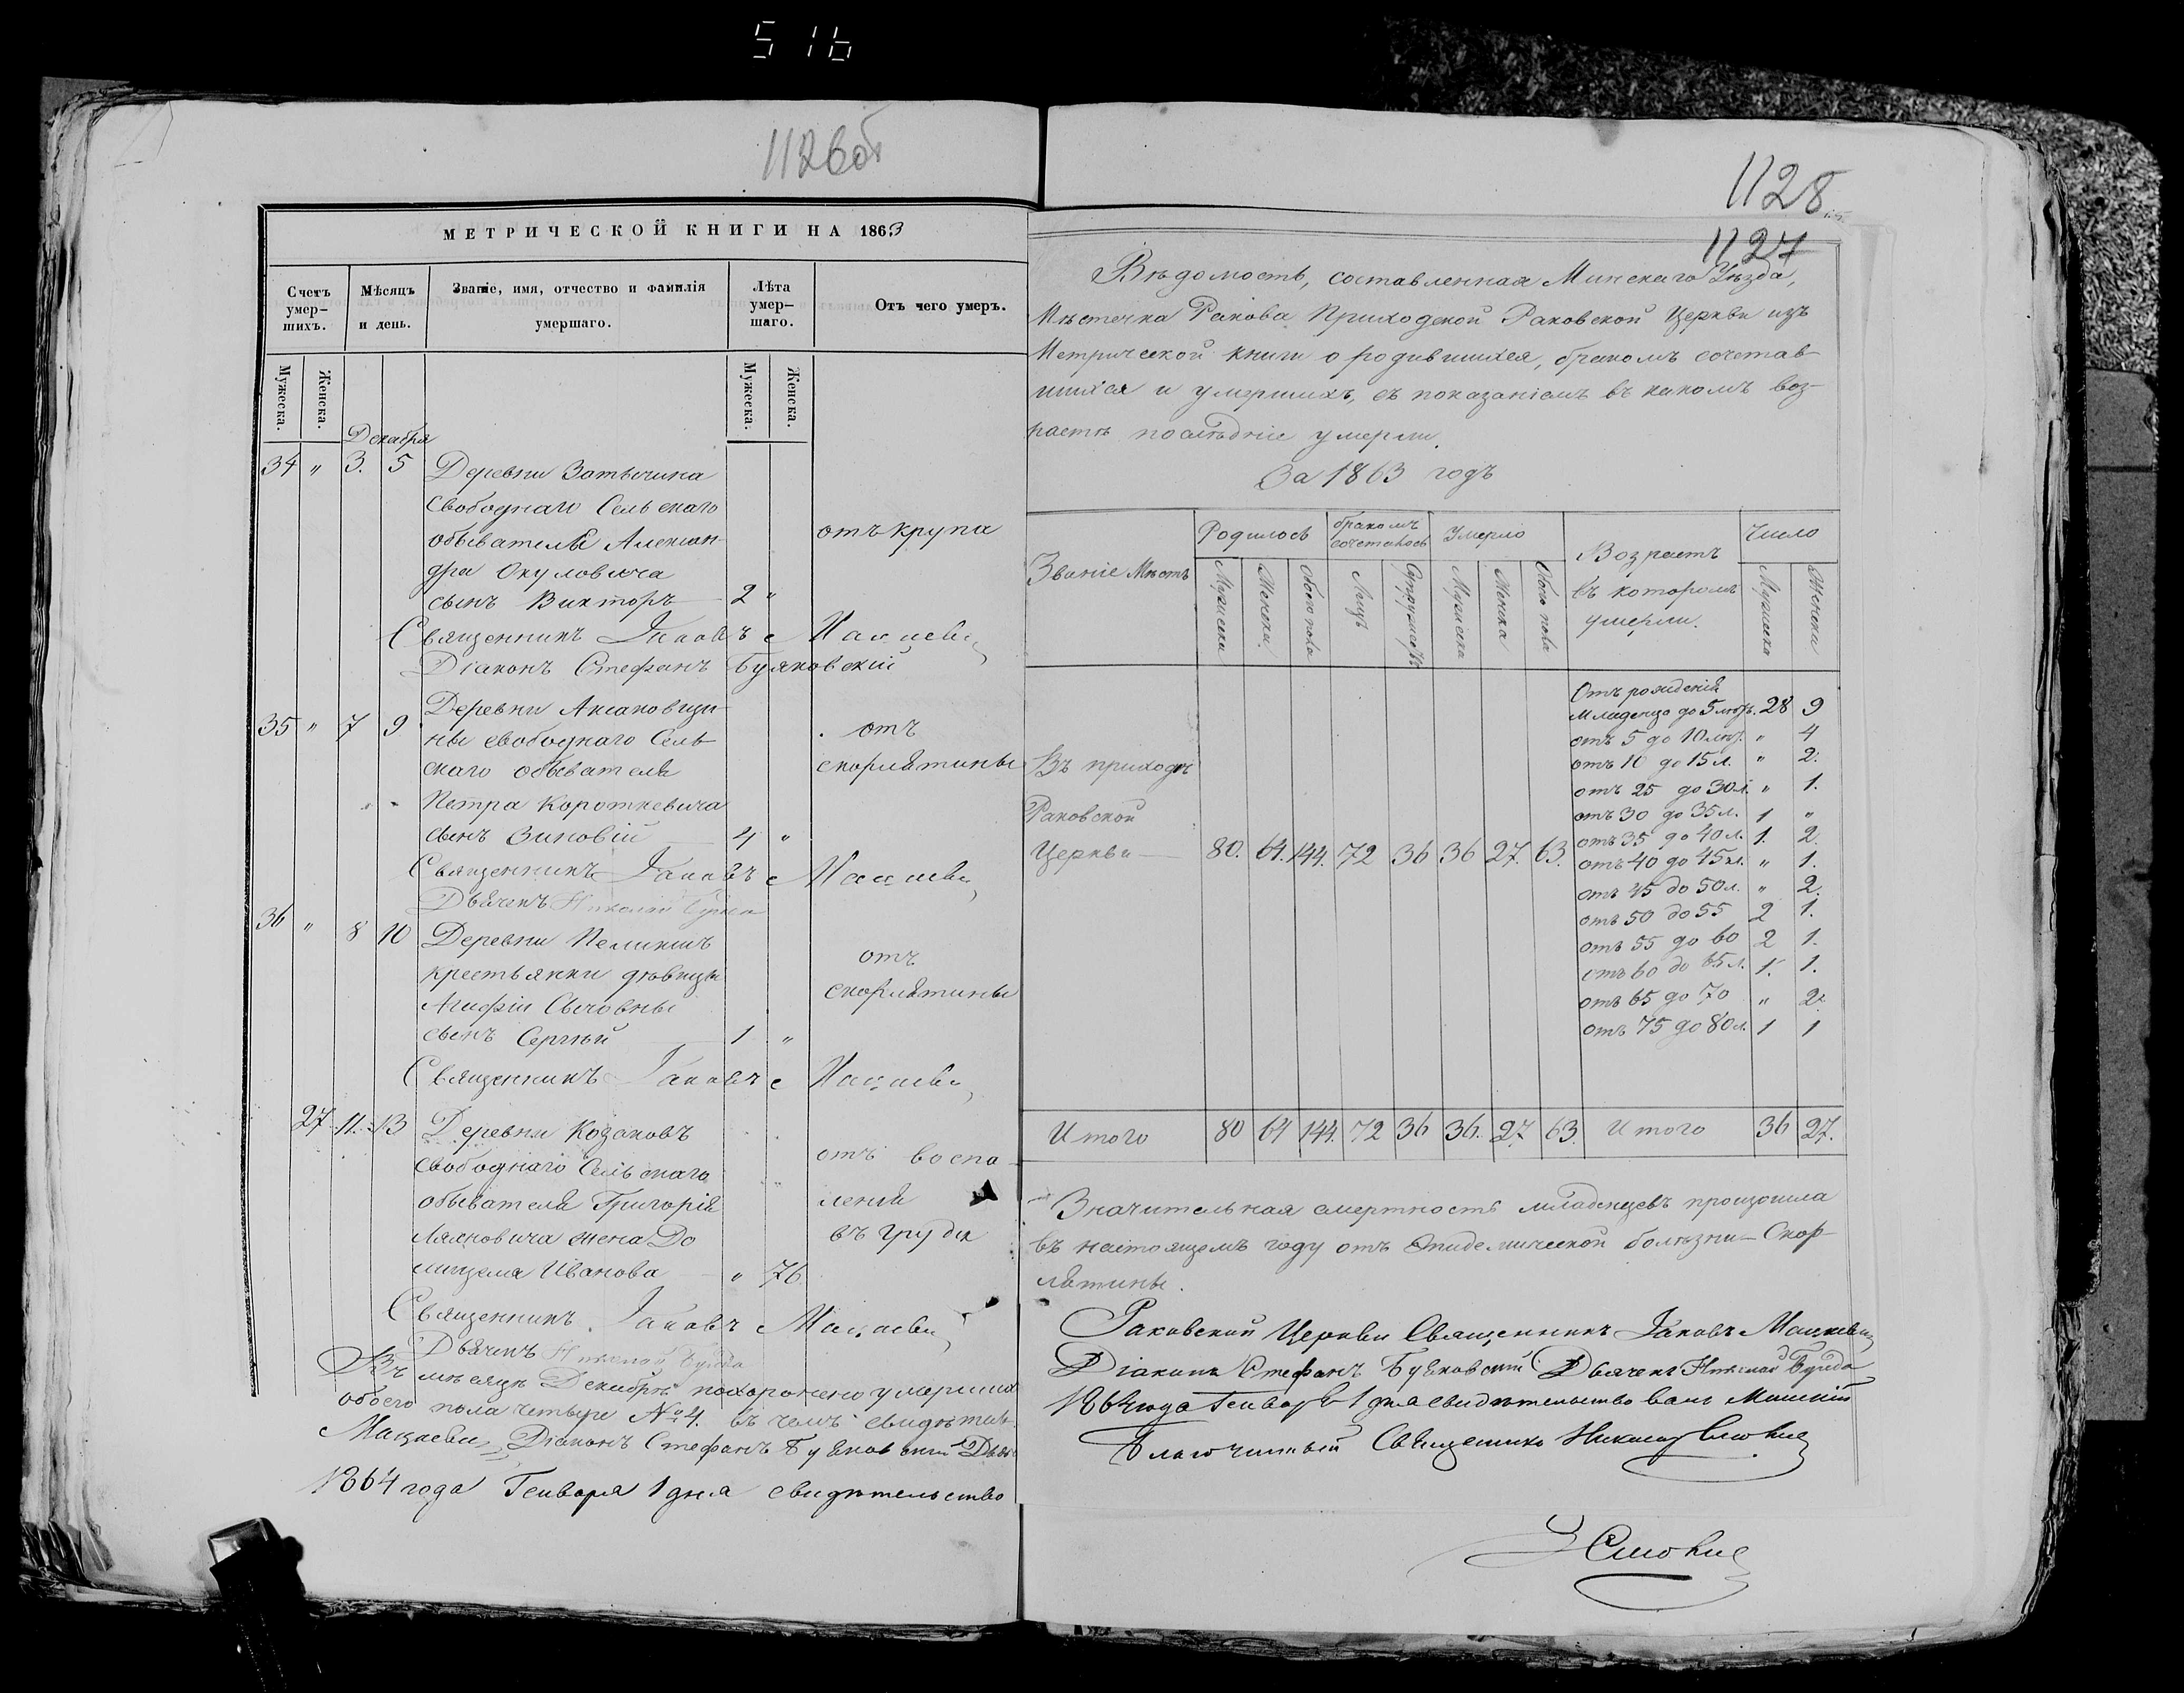 516
1126об
МЕТРИЧЕСКОЙ КНИГИ НА 1863
Счетъ умер-шихъ.
Мѣсяцъ и день.
Званіе, имя, отчество и фамилія умершаго.
Лѣта умер-шаго.
Отъ чего умеръ.
Мужеска.
Женска.
Мужеска.
Женска.
Декабря
34 " 3. 5 Деревни
Свободнаго Сельскаго
обывателя Алексан-
отъ крупа
дра Окуловича
сынъ Викторъ 2 "
Священникъ Іаковъ
Діаконъ Стефанъ
Деревни
35 " 7 9 ны свободнаго Сель-
отъ
скаго обывателя
скорлятины
Петра Короткевича
сынъ Зиновій 4 "
Священникъ Іаковъ
Дьячекъ
36 " 8 10 Деревни
отъ
крестьянки дѣвицы
скорлятины
сынъ Сергѣй 1 "
Священникъ Іаковъ
27 11. 13 Деревни Козаковъ
свободнаго Сельскаго
отъ воспа-
обывателя Григорія
ленія
жена До
въ груди
Иванова " 76
Священникъ Іаковъ
Дьячекъ
Въ мѣсяцѣ Декабрѣ похоронено умершихъ
обоего пола четыре № 4. въ чемъ
Діаконъ Стефанъ
1864 года Генваря 1 дня свидѣтельство
1128
1127
Вѣдомость, составленная Минскаго Уѣзда,
Мѣстечка Ракова Приходской Раковской Церкви изъ
Метрической книги о родившихся, бракомъ сочетав-
шихся и умершихъ, съ показаніемъ въ какомъ воз-
растѣ послѣдніе умерли.
За 1863 годъ
Званіе Мѣстъ
Родилось
бракомъ сочеталось
Умерло
Возрастъ въ которомъ умерли.
Число
Мужеска
Женска
Обоего пола
Лицъ
Супружествъ
Мужеска
Женска
Обоего пола
Мужеска
Женска
Отъ рожденія
Младенцо до 5 лѣтъ. 28 9
отъ 5 до 10 лѣт. " 4
отъ 10 до 15 л. " 2.
отъ 25 до 30 л. " 1.
отъ 30 до 35 л. 1 "
отъ 35 до 40 л. 1. 2
отъ 40 до 45 л. " 1.
отъ 45 до 50 л. " 2.
отъ 50 до 55 2 1.
отъ 55 до 60 2 1.
отъ 60 до 65 л. 1. 1.
отъ 65 до 70 " 2.
отъ 75 до 80 л. 1 1
Въ приходѣ
Раковской
Церкви 80. 64. 144. 72 36 36 27. 63.
Итого 80 64 144. 72 36 36. 27. 63. Итого 36 27.
Значительная смертность младенцевъ произошла
въ настоящемъ году отъ Эпидемической болѣзни - Скор-
лятины.
Раковской Церкви Священникъ Іаковъ
Діаконъ Стефанъ Дьячекъ
1864 года Генваря 1 дня свидѣтельствовалъ Минскій
Благочинный Священникъ Николай